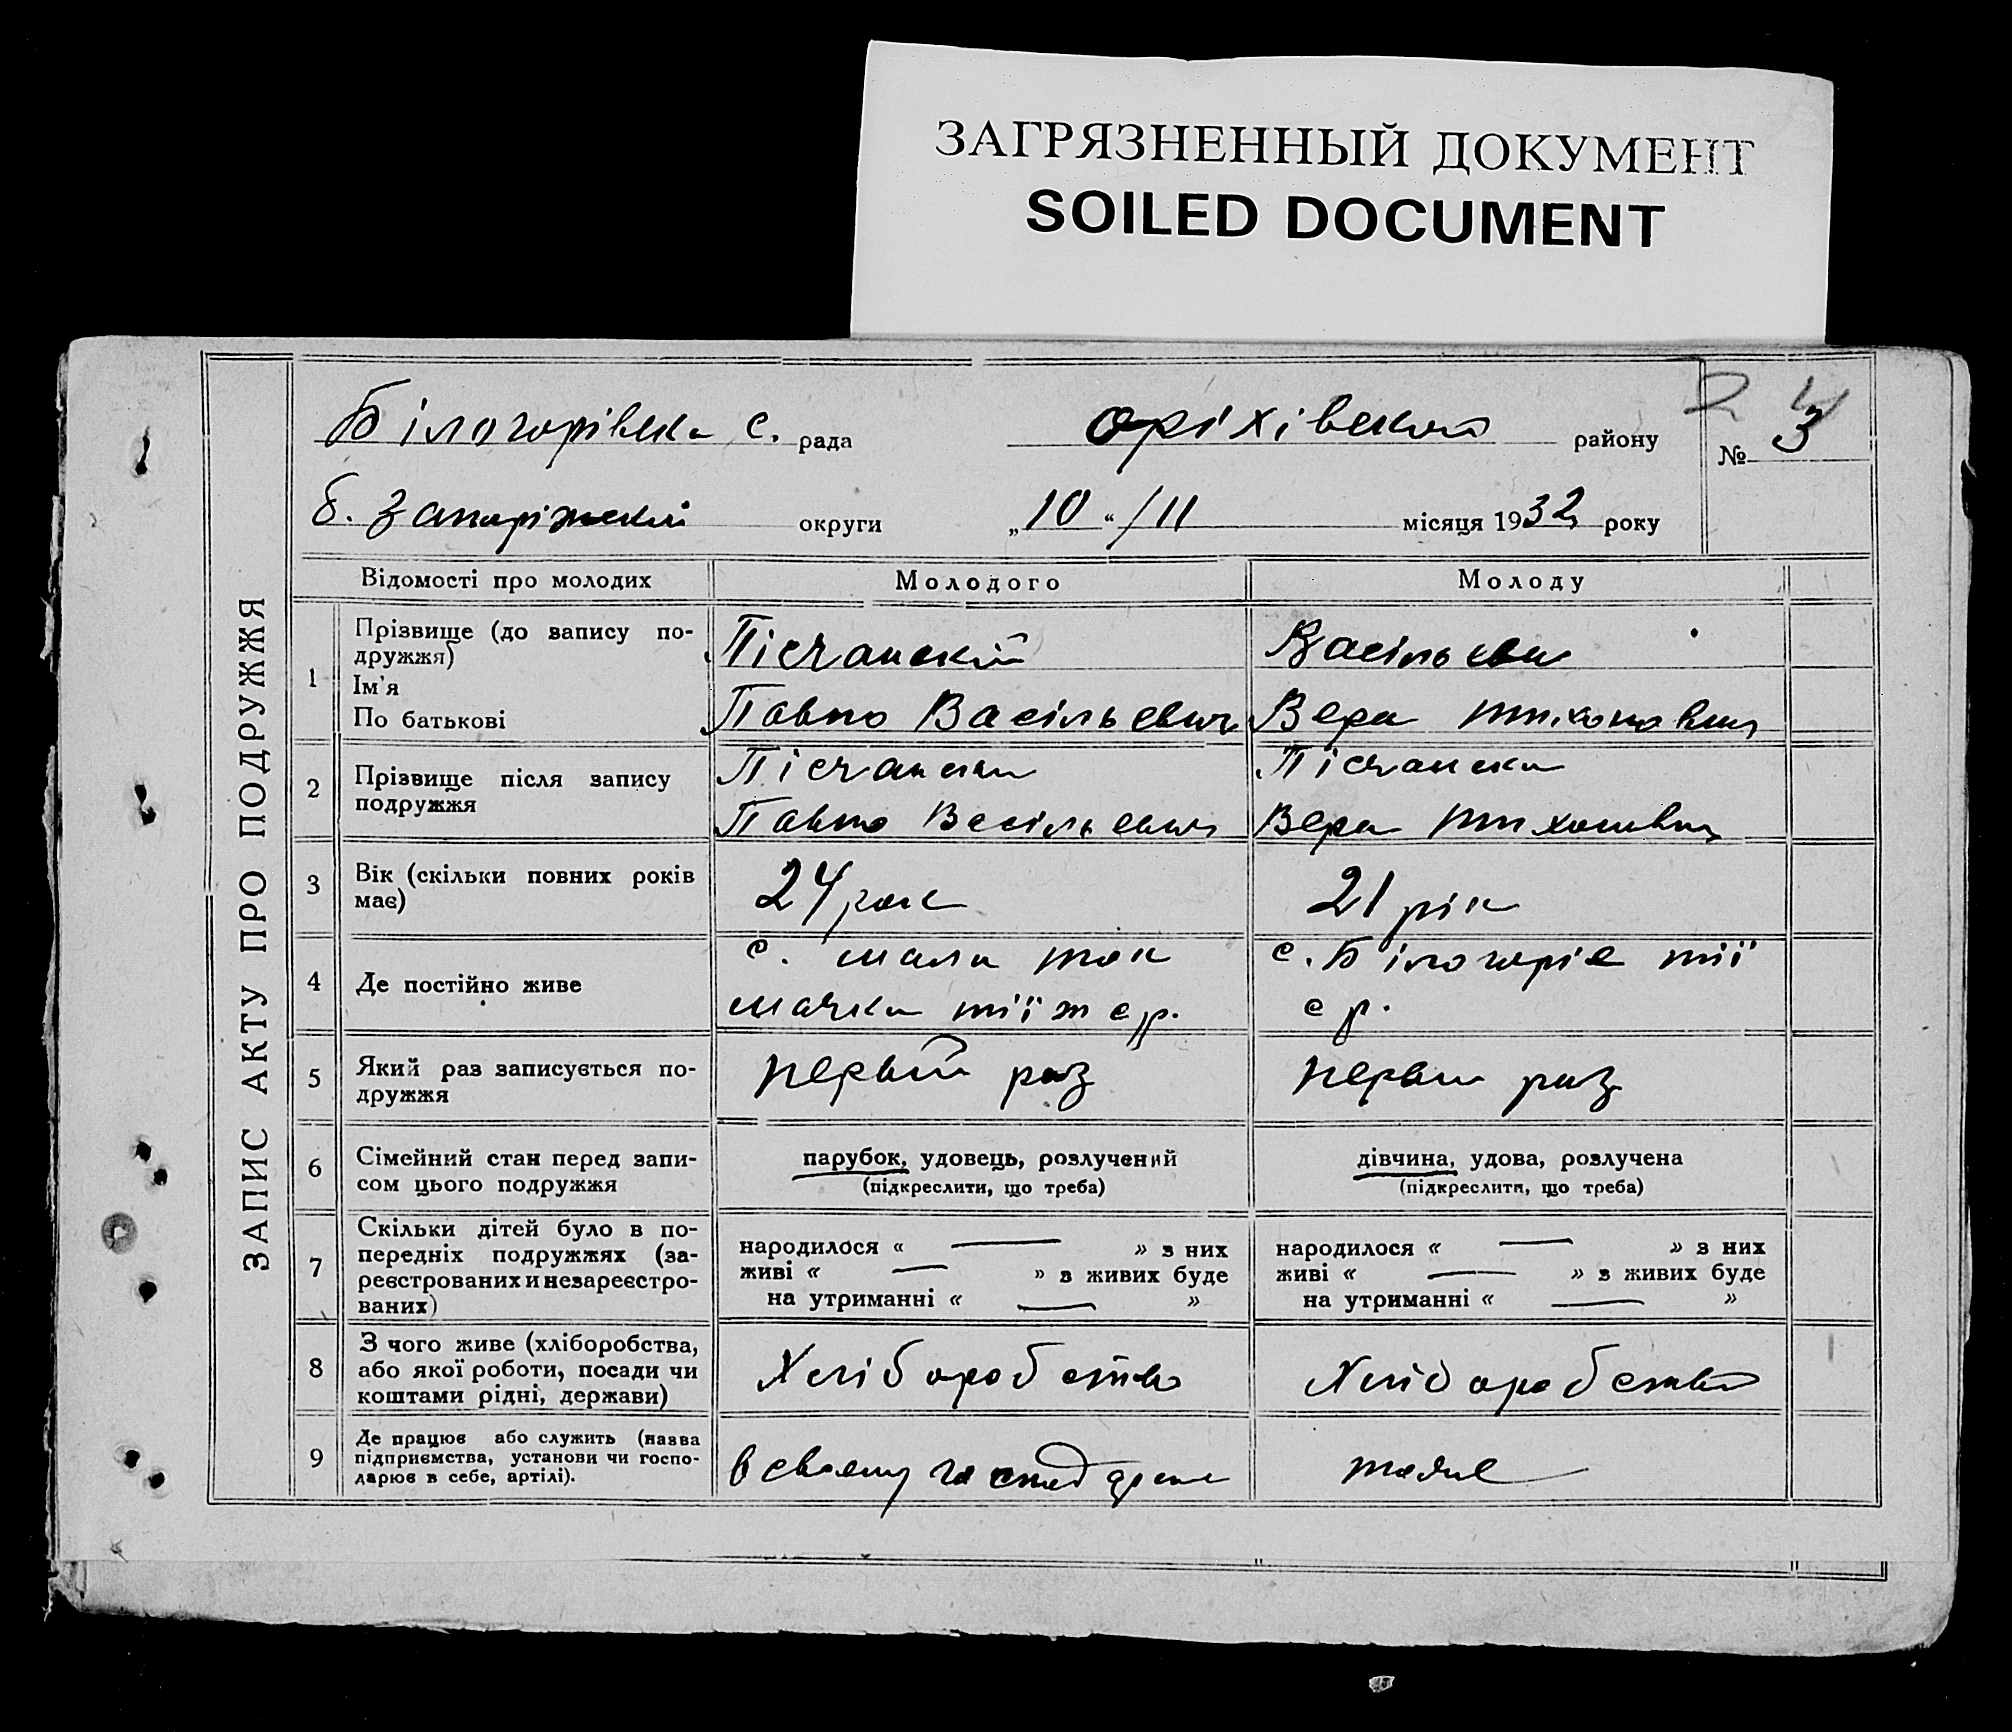 ЗАГРЯЗНЕННЫЙ ДОКУМЕНТ
SOILED DOCUMENT
ЗАПИС АКТУ ПРО ПОДРУЖЖЯ
Білогорівска с. рада Оріхівский району № 3
б. Запоріжский округи „10“ /II місяця 1932 року
Відомості про молодих Молодого Молоду
1 Прізвище (до запису по-
дружжя)
Ім'я
По батькові
Пісчанский
Павло Васільевич
Васільева
Вера Тихоновна
2 Прізвище після запису
подружжя
Пісчанский
Павло Васільевич
Пісчанска
Вера Тихоновна
3 Вік (скільки повних років
має)
24 рок
21 рік
4 Де постійно живе
с. мала ток
мачка тії ж с р.
с. Білогоріє тії
с р.
5 Який раз записується по-
дружжя
первий раз
первий раз
6 Сімейний стан перед запи-
сом цього подружжя
парубок, удовець, розлучений
(підкреслити, що треба)
дівчина, удова, розлучена
(підкреслити, що треба)
7 Скільки дітей було в по-
передніх подружжях (за-
реєстрованих и незареєстро-
ваних)
народилося « — » з них
живі « — » з живих буде
на утриманні « — »
народилося « — » з них
живі « — » з живих буде
на утриманні « — »
8 З чого живе (хліборобства,
або якої роботи, посади чи
коштами рідні, держави)
Хліборобство
Хліборобство
9 Де працює або служить (назва
підприємства, установи чи госпо-
дарює в себе, артілі).
в своему